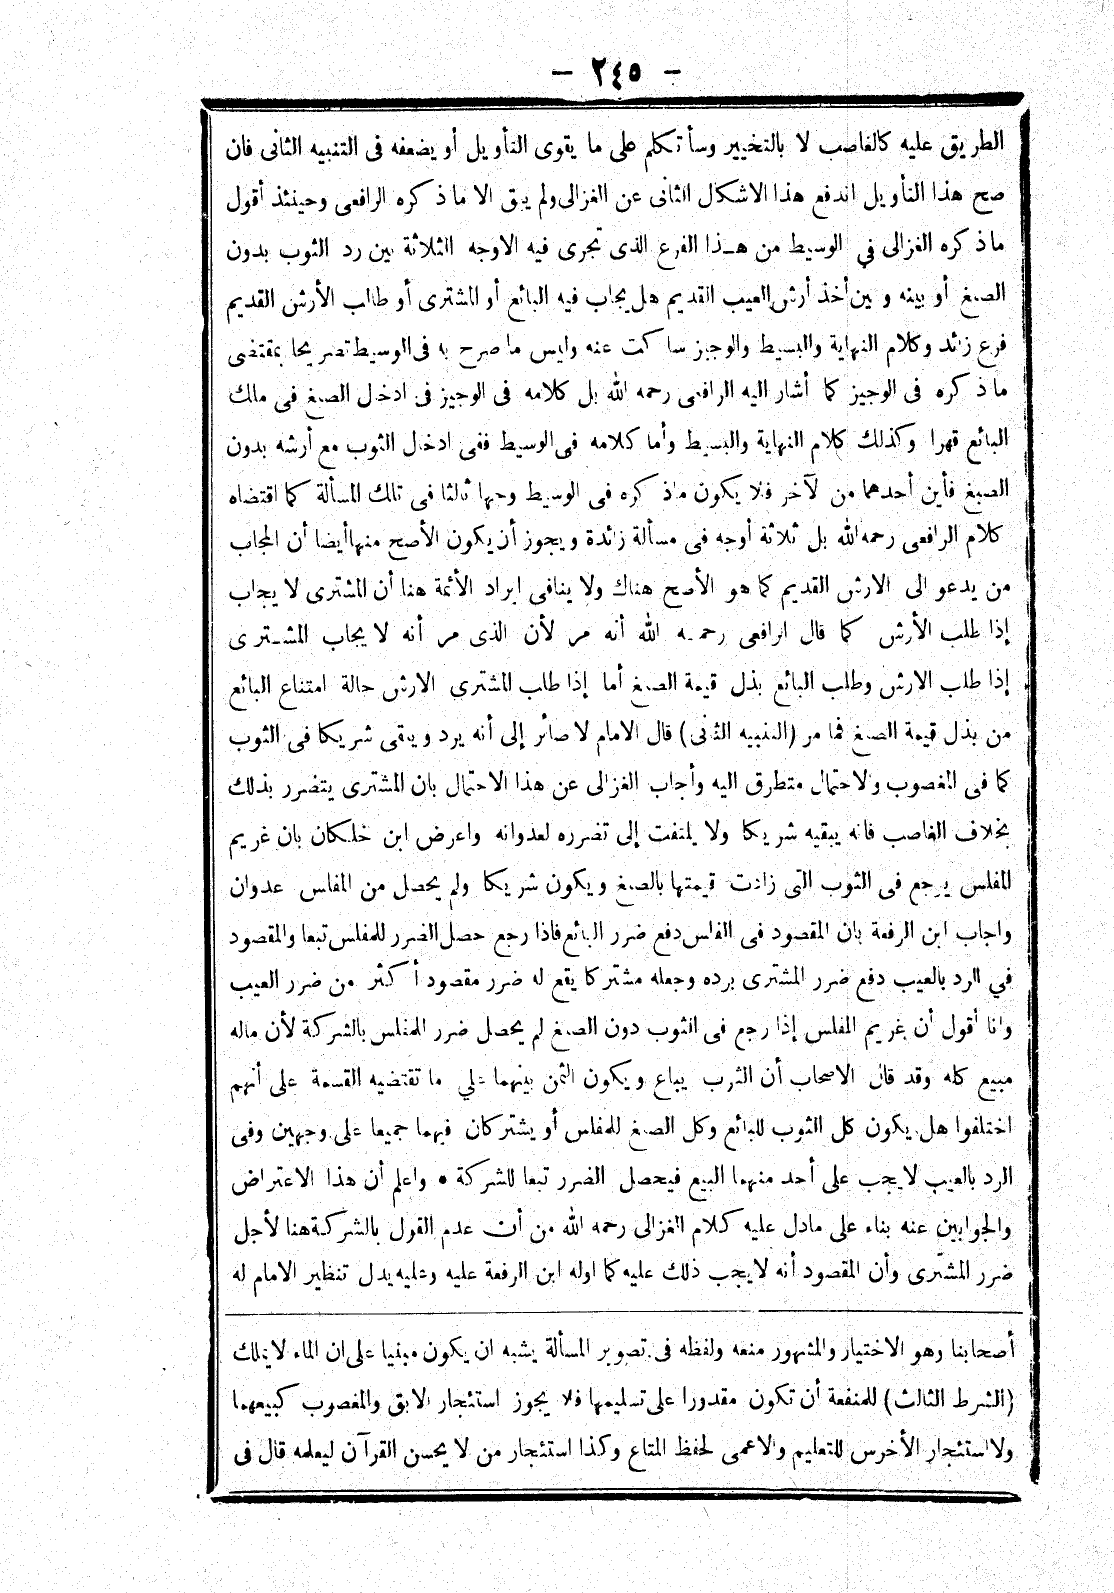 — ٢٤٥ —
الطريق عليه كالغاصب لا بالتخيير وسأتكلم على ما يقوى التأويل أو يضعفه فى التنبيه الثانى فان
صح هذا التأويل اندفع هذا الاشكال الثانى عن الغزالى ولم يبق الا ماذكره الرافعى وحينئذ أقول
ماذكره الغزالى في الوسيط من هـذا الفرع الذى تجرى فيه الاوجه الثلاثة بين رد الثوب بدون
الصبغ أو بينه وبين أخذ أرش العيب القديم هل يجاب فيه البائع أو المشترى أو طالب الأرش القديم
فرع زائد وكلام النهاية والبسيط والوجيز ساكت عنه وليس ما صرح به فى الوسيط تصريحا بمقتضى
ماذكره فى الوجيز كما أشار اليه الرافعى رحمه الله بل كلامه فى الوجيز فى ادخال الصبغ فى ملك
البائع قهرا وكذلك كلام النهاية والبسيط وأما كلامه فى الوسيط ففى ادخال الثوب مع أرشه بدون
الصبغ فأين أحدهما من لآخر فلا يكون ماذكره فى الوسيط وجها ثالثا فى تلك المسألة كما اقتضاه
كلام الرافعى رحمه الله بل ثلاثة أوجه فى مسألة زائدة ويجوز أن يكون الأصح منها أيضا أن المجاب
من يدعو الى الارش القديم كما هو الأصح هناك ولا ينافى ايراد الأئمة هنا أن المشترى لا يجاب
إذا طلب الأرش كما قال الرافعى رحمـه الله أنه مر لأن الذى مر أنه لا يجاب المشـترى
إذا طلب الارش وطلب البائع بذل قيمة الصبغ أما إذا طلب المشترى الارش حالة امتناع البائع
من بذل قيمة الصبغ فما مر (التنبيه الثانى) قال الامام لا صائر إلى أنه يرد ويبقى شريكا فى الثوب
كما فى المغصوب والاحتمال متطرق اليه وأجاب الغزالى عن هذا الاحتمال بان المشترى يتضرر بذلك
بخلاف الغاصب فانه يبقيه شريكا ولا يلتفت إلى تضرره لعدوانه واعرض ابن خلكان بان غريم
المفلس يرجع فى الثوب التى زادت قيمتها بالصبغ ويكون شريكا ولم يحصل من المفلس عدوان
واجاب ابن الرفعة بان المقصود فى الفلس دفع ضرر البائع فاذا رجع حصل الضرر للمفلس تبعا والمقصود
في الرد بالعيب دفع ضرر المشترى برده وجعله مشتركا يقع له ضرر مقصود أكثر من ضرر العيب
وانا أقول أن غريم المفلس إذا رجع فى الثوب دون الصبغ لم يحصل ضرر المفلس بالشركة لأن ماله
مبيع كله وقد قال الاصحاب أن الثوب يباع ويكون الثمن بينهما علي ما تقتضيه القسمة على أنهم
اختلفوا هل يكون كل الثوب للبائع وكل الصبغ للمفلس أو يشتركان فيهما جميعا على وجهين وفى
الرد بالعيب لايجب على أحد منهما البيع فيحصل الضرر تبعا للشركة • واعلم أن هذا الاعتراض
والجوابين عنه بناء على مادل عليه كلام الغزالى رحمه الله من أن عدم القول بالشركة هنا لأجل
ضرر المشترى وأن المقصود أنه لايجب ذلك عليه كما اوله ابن الرفعة عليه وعليه يدل تنظير الامام له
أصحابنا وهو الاختيار والمشهور منعه ولفظه فى تصوير المسألة يشبه ان يكون مبنيا على ان الماء لايملك
(الشرط الثالث) للمنفعة أن تكون مقدورا على تسليمها فلا يجوز استئجار الابق والمغصوب كبيعهما
ولا استئجار الأخرس للتعليم والاعمى لحفظ المتاع وكذا استئجار من لا يحسن القرآن ليعلمه قال فى